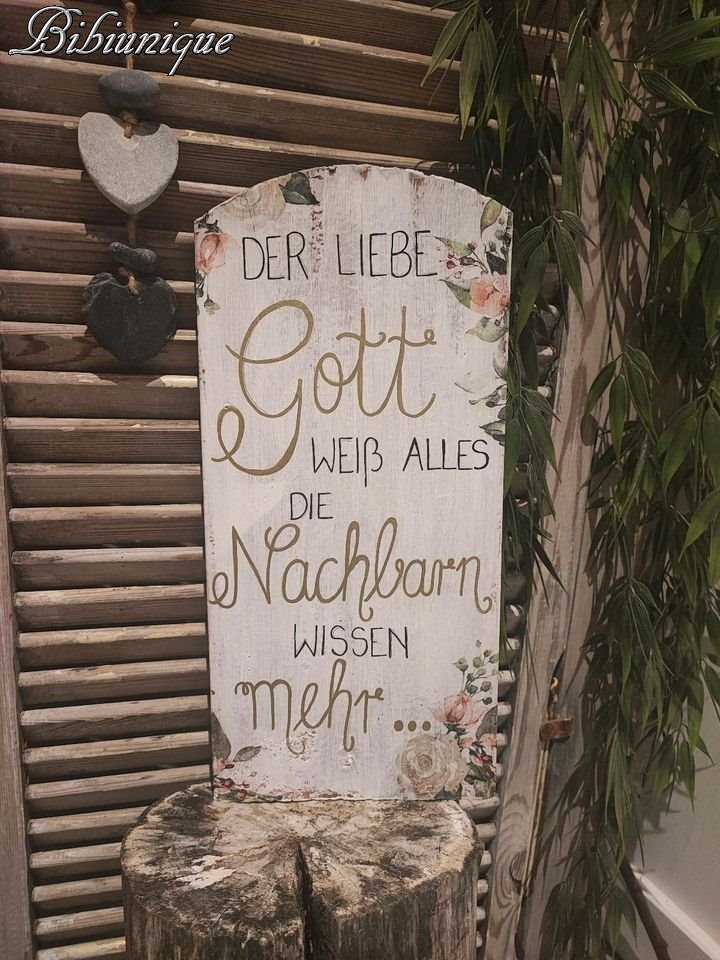 Bibiunique
DER LIEBE
Gott
WEIß ALLES
DIE
Nachbarn
WISSEN
mehr...